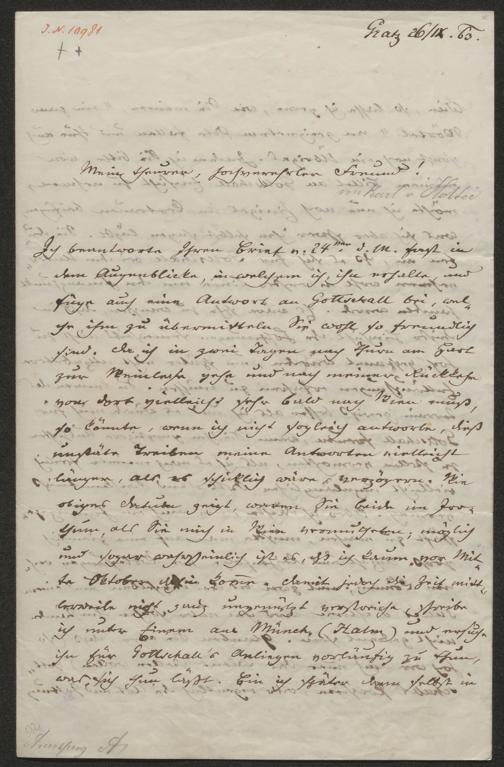 J. N. 10981
Gratz 26/IX. 63.
Mein theurer, hochverehrter Freund!
Karl v. Holtei
Ich beantworte Ihren Brief v. 24ten d. M. fast in
dem Augenblicke, in welchem ich ihn erhalte, und
füge auch eine Antwort an Gottschall bei, wel-
che ihm zu übermitteln Sie wohl so freundlich
sind. Da ich in zwei Tagen nach Thurn am Hart
zur Weinlese gehe und nach meiner Rückkehr
von dort vielleicht sehr bald nach Wien muß,
so könnte, wenn ich nicht sogleich antworte, dieß
unstäte Treiben meine Antworten vielleicht
länger, als es schicklich wäre, verzögern. Wie
obiges Datum zeigt, waren Sie beide im Irr-
thum, als Sie mich in Wien vermutheten; möglich
und sogar wahrscheinlich ist es, daß ich kaum vor Mit-
te Oktober hin komme. Damit jedoch die Zeit mitt-
lerweile nicht ganz ungenützt verstreiche, schreibe
ich unter Einem an Münch (Halm) und ersuche
ihn für Gottschall's Anliegen vorläufig zu thun,
was sich thun läßt. Bin ich später dann selbst in